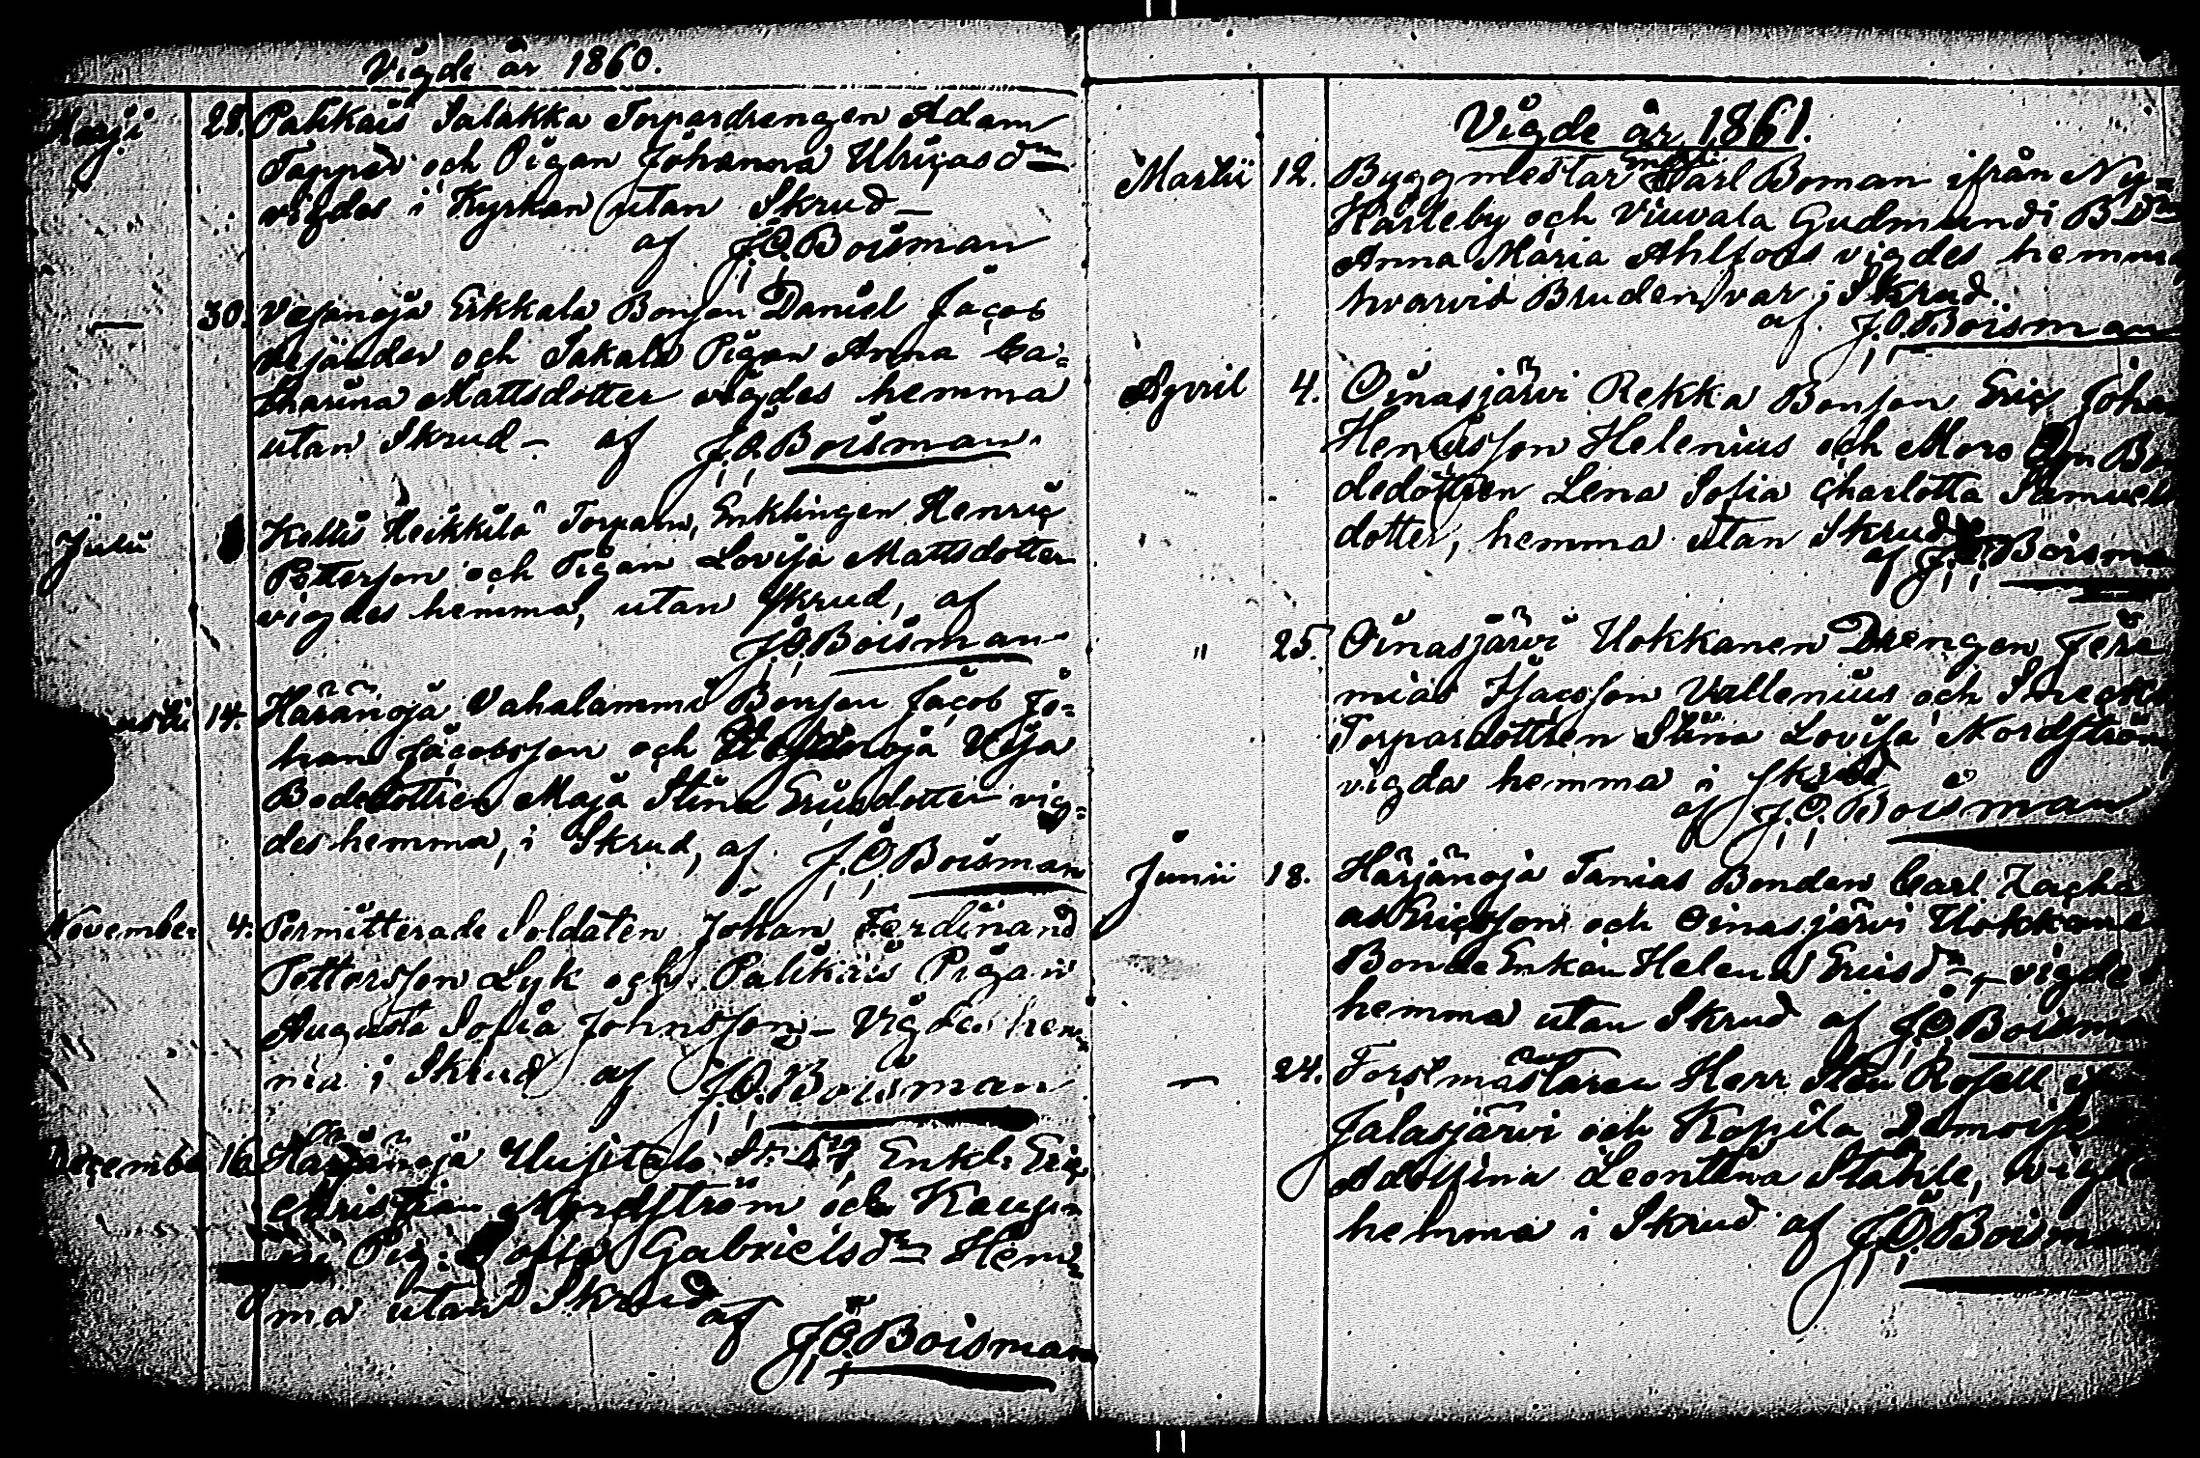 Vigde år 1860.
Maji 28. Palikais Salakka Torpardrengen Adam
Tapper och Pigan Johanna Ulricasdr
vigdes i Kyrkan utan Skrud –
af J. O. Boisman
— 30. Erkkala Bonson Daniel Jacob
och Pigan Anna Ca=
tharina Mattsdotter vigdes hemma
utan Skrud – af J. O. Boisman.
Julii Heikkilä Torparn, Enklingen Henric
Pettersson och Pigan Lovisa Mattsdotter
vigdes hemma, utan Skrud, af
J. O. Boisman
14. Häränoja Vahalammi Bonson Jacob Jo=
han Jacobsson och
Maja Stina Ericsdotter vig=
des hemma, i Skrud, af J. O. Boisman
November 4. Permitterade Soldaten Johan Ferdinand
Lyk och Palikais Pigan
Augusta Sofia Johnsson – Vigdes hem
ma i Skrud af J. O. Boisman
December 16. Härjänoja Uusitalo Enkl: Eric
Christian Nordström och
Pig: Sofia Gabrielsdr Hem
ma utan Skrud
af J. O. Boisman
Vigde år 1861.
Martii 12. Byggmestar Carl Boman ifrån Ny=
Harleby och Viuvala Gudmundi B.Dr
Anna Maria Ahlfors vigdes hemma
hvarvid Bruden var i Skrud.
af J. O. Boisman
April 4. Oinasjärvi Rekka Bonson Eric Johan
Henricsson Helenius och
dedottren Lena Sofia Charlotta Samuels
dotter, hemma utan Skrud
af J. O. Boisman
" 25. Oinasjärvi Uokkanen Drengen Jere
mias Isacsson Vallenius och
Torpardottren Stina Lovisa Nordström
vigda hemma i Skrud
af J. O. Boisman
Junii 18. Härjänoja Tanias Bonden Carl Zacha
as Ericsson och Oinasjärvi Uokkane
BondeEnkan Helena Ericsdr, vigdes
hemma utan Skrud af J. O. Boisman
— 24. Forstmästaren Herr Sten Rosell
Jalasjärvi och Kopila
Adolfina Leontina Ståhle, vigde
hemma i Skrud af J. O. Boisman